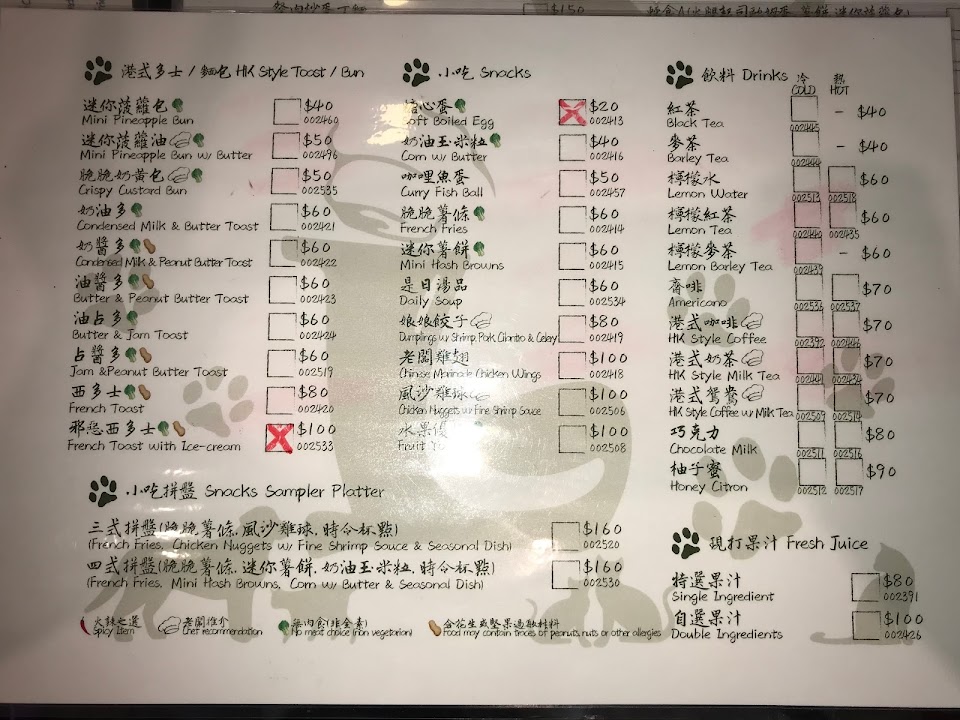 $150
港式多士 / 麵包 HK Style Toast / Bun
迷你菠蘿包 $40
Mini Pineapple Bun 002460
迷你菠蘿油 $50
Mini Pineapple Bun w/ Butter 002496
脆脆奶黃包 $50
Crispy Custard Bun 002535
奶油多 $60
Condensed Milk & Butter Toast 002421
奶醬多 $60
Condensed Milk & Peanut Butter Toast 002422
油醬多 $60
Butter & Peanut Butter Toast 002423
油占多 $60
Butter & Jam Toast 002424
占醬多 $60
Jam & Peanut Butter Toast 002519
西多士 $80
French Toast 002420
邪惡西多士 $100
French Toast with Ice-cream 002533
小吃 Snacks
心蛋 $20
Soft Boiled Egg 002413
奶油玉米粒 $40
Corn w/ Butter 002416
咖哩魚蛋 $50
Curry Fish Ball 002457
脆脆薯條 $60
French Fries 002414
迷你薯餅 $60
Mini Hash Browns 002415
是日湯品 $60
Daily Soup 002534
娘娘餃子 $80
Dumplings w/ Shrimp, Pork, Cilantro & Celery 002419
老闆雞翅 $100
Chinese Marinade Chicken Wings 002418
風沙雞球 $100
Chicken Nuggets w/ Fine Shrimp Sauce 002506
水果優 $100
Fruit Yo 002508
飲料 Drinks 冷 熱
COLD HOT
紅茶 - $40
Black Tea 002445
麥茶 - $40
Barley Tea 002444
檸檬水 $60
Lemon Water 002513 002518
檸檬紅茶 $60
Lemon Tea 002440 002435
檸檬麥茶 - $60
Lemon Barley Tea 002439
齋啡 $70
Americano 002536 002537
港式咖啡 $70
HK Style Coffee 002392 002446
港式奶茶 $70
HK Style Milk Tea 002441 002434
港式鴛鴦 $70
HK Style Coffee w/ Milk Tea 002509 002514
巧克力 $80
Chocolate Milk 002511 002516
柚子蜜 $90
Honey Citron 002512 002517
小吃拼盤 Snacks Sampler Platter
三式拼盤(脆脆薯條, 風沙雞球, 時令杯點) $160
(French Fries, Chicken Nuggets w/ Fine Shrimp Sauce & Seasonal Dish) 002520
四式拼盤(脆脆薯條, 迷你薯餅, 奶油玉米粒, 時令杯點) $160
(French Fries, Mini Hash Browns, Corn w/ Butter & Seasonal Dish) 002530
現打果汁 Fresh Juice
特選果汁 $80
Single Ingredient 002391
自選果汁 $100
Double Ingredients 002426
火辣之選 老闆推介 無肉食(非全素) 含花生或堅果過敏材料
Spicy Item Chef recommendation No meat choice (non vegetarian) Food may contain traces of peanuts, nuts or other allergies